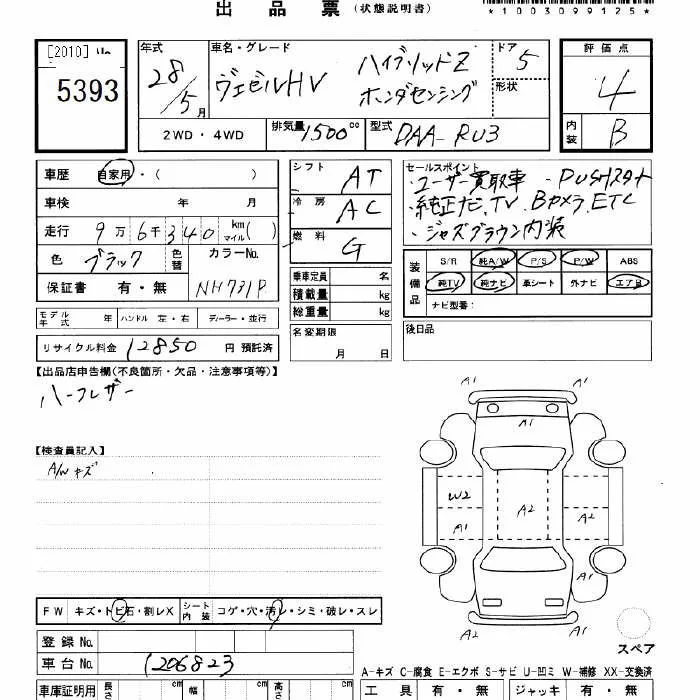 出品票 (状態説明書)
*1003099125*
[2010]
5393
年式 28/5月
車名・グレード ヴェゼルHV ハイブリッドZ ホンダセンシング
ドア 5
形状
評価点 4
内装 B
2WD・4WD
排気量 1500cc
型式 DAA-RU3
車歴 自家用・( )
車検 年 月
走行 9万6千340km マイル( )
色 ブラック 色替
カラーNo. NH731P
保証書 有・無
シフト AT
冷房 AC
燃料 G
乗車定員 名
積載量 kg
総重量 kg
セールスポイント
・ユーザー買取車 ・PUSHスタート
・純正ナビ、TV、Bカメラ、ETC
・ジャズブラウン内装
装備品 S/R 純A/W P/S P/W ABS
純TV 純ナビ 革シート 外ナビ エアB
ナビ型番:
モデル年式 年 ハンドル 左・右 ディーラー・並行
名変期限 月 日
後日品
リサイクル料金 12850 円 預託済
【出品店申告欄(不良箇所・欠品・注意事項等)】
ハーフレザー
【検査員記入】
A/W キズ
A1 A1
A1
W2 A2 A2
A1
A1
A2 A1
スペア
FW キズ・トビ石・割レX シート内装 コゲ・穴・汚レ・シミ・破レ・スレ
登録No.
車台No. 1206823
A-キズ C-腐食 E-エクボ S-サビ U-凹ミ W-補修 XX-交換済
車庫証明用 長さ cm 幅 cm 高さ cm
工具 有・無 ジャッキ 有・無